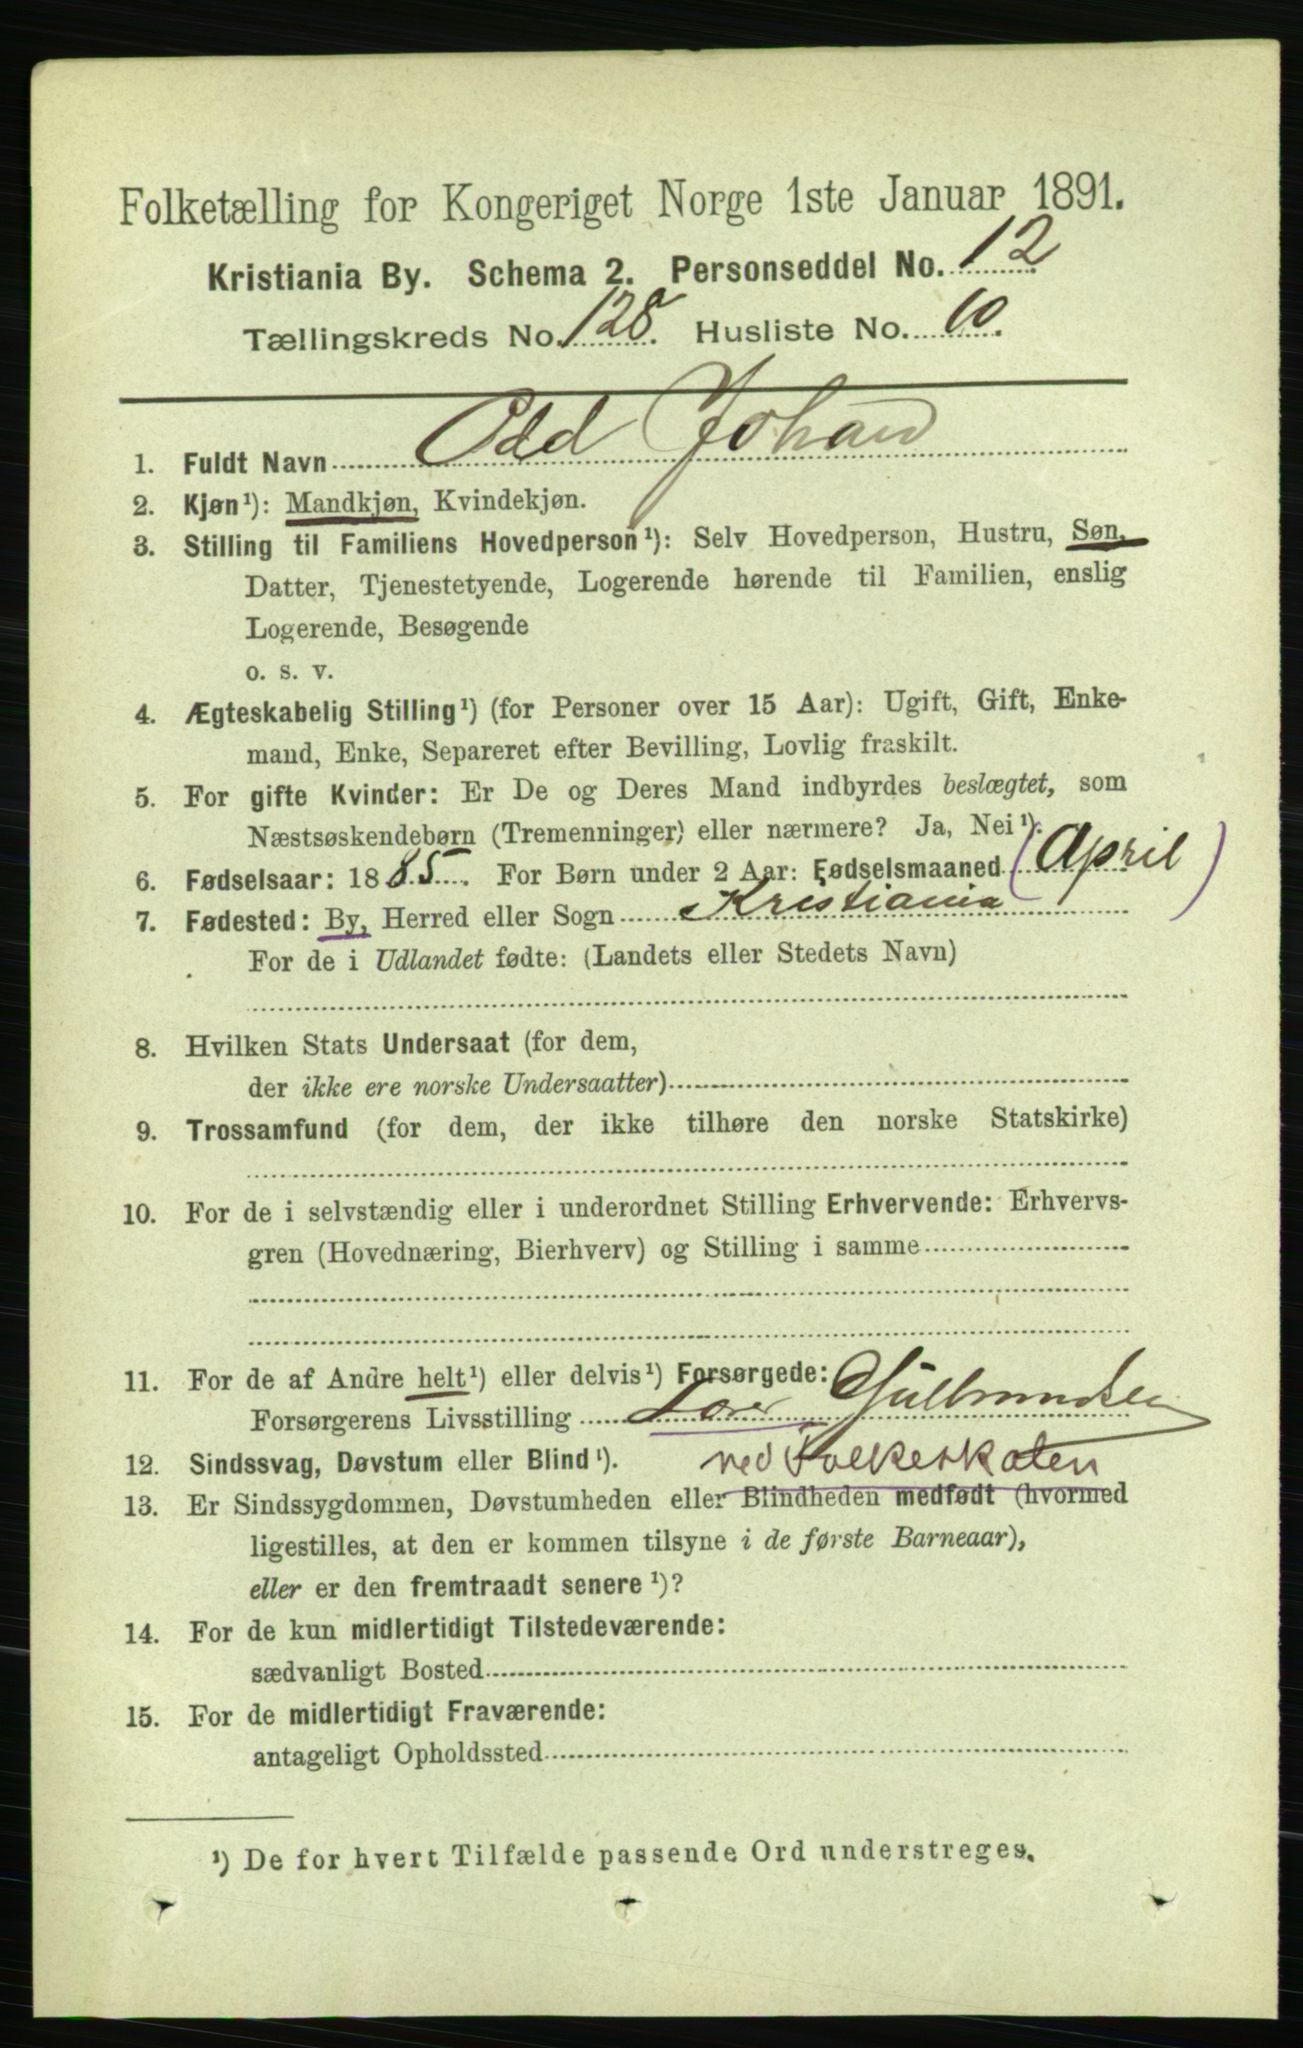 Folketælling for Kongeriget Norge 1ste Januar 1891.
Kristiania By. Schema 2. Personseddel No. 12
Tællingskreds No. 128. Husliste No. 10.
1. Fuldt Navn Odd Johan
2. Kjøn¹): Mandkjøn, Kvindekjøn.
3. Stilling til Familiens Hovedperson¹): Selv Hovedperson, Hustru, Søn,
Datter, Tjenestetyende, Logerende hørende til Familien, enslig
Logerende, Besøgende
o. s. v.
4. Ægteskabelig Stilling¹) (for Personer over 15 Aar): Ugift, Gift, Enke-
mand, Enke, Separeret efter Bevilling, Lovlig fraskilt.
5. For gifte Kvinder: Er De og Deres Mand indbyrdes beslægtet, som
Næstsøskendebørn (Tremenninger) eller nærmere? Ja, Nei¹).
6. Fødselsaar: 1885. For Børn under 2 Aar: Fødselsmaaned (April)
7. Fødested: By, Herred eller Sogn Kristiania
For de i Udlandet fødte: (Landets eller Stedets Navn)
8. Hvilken Stats Undersaat (for dem,
der ikke ere norske Undersaatter)
9. Trossamfund (for dem, der ikke tilhøre den norske Statskirke)
10. For de i selvstændig eller i underordnet Stilling Erhvervende: Erhvervs-
gren (Hovednæring, Bierhverv) og Stilling i samme
11. For de af Andre helt¹) eller delvis¹) Forsørgede:
Forsørgerens Livsstilling Lærer Gulbrundsen
12. Sindssvag, Døvstum eller Blind¹). ved Folkeskolen
13. Er Sindssygdommen, Døvstumheden eller Blindheden medfødt (hvormed
ligestilles, at den er kommen tilsyne i de første Barneaar),
eller er den fremtraadt senere¹)?
14. For de kun midlertidigt Tilstedeværende:
sædvanligt Bosted
15. For de midlertidigt Fraværende:
antageligt Opholdssted
¹) De for hvert Tilfælde passende Ord understreges.